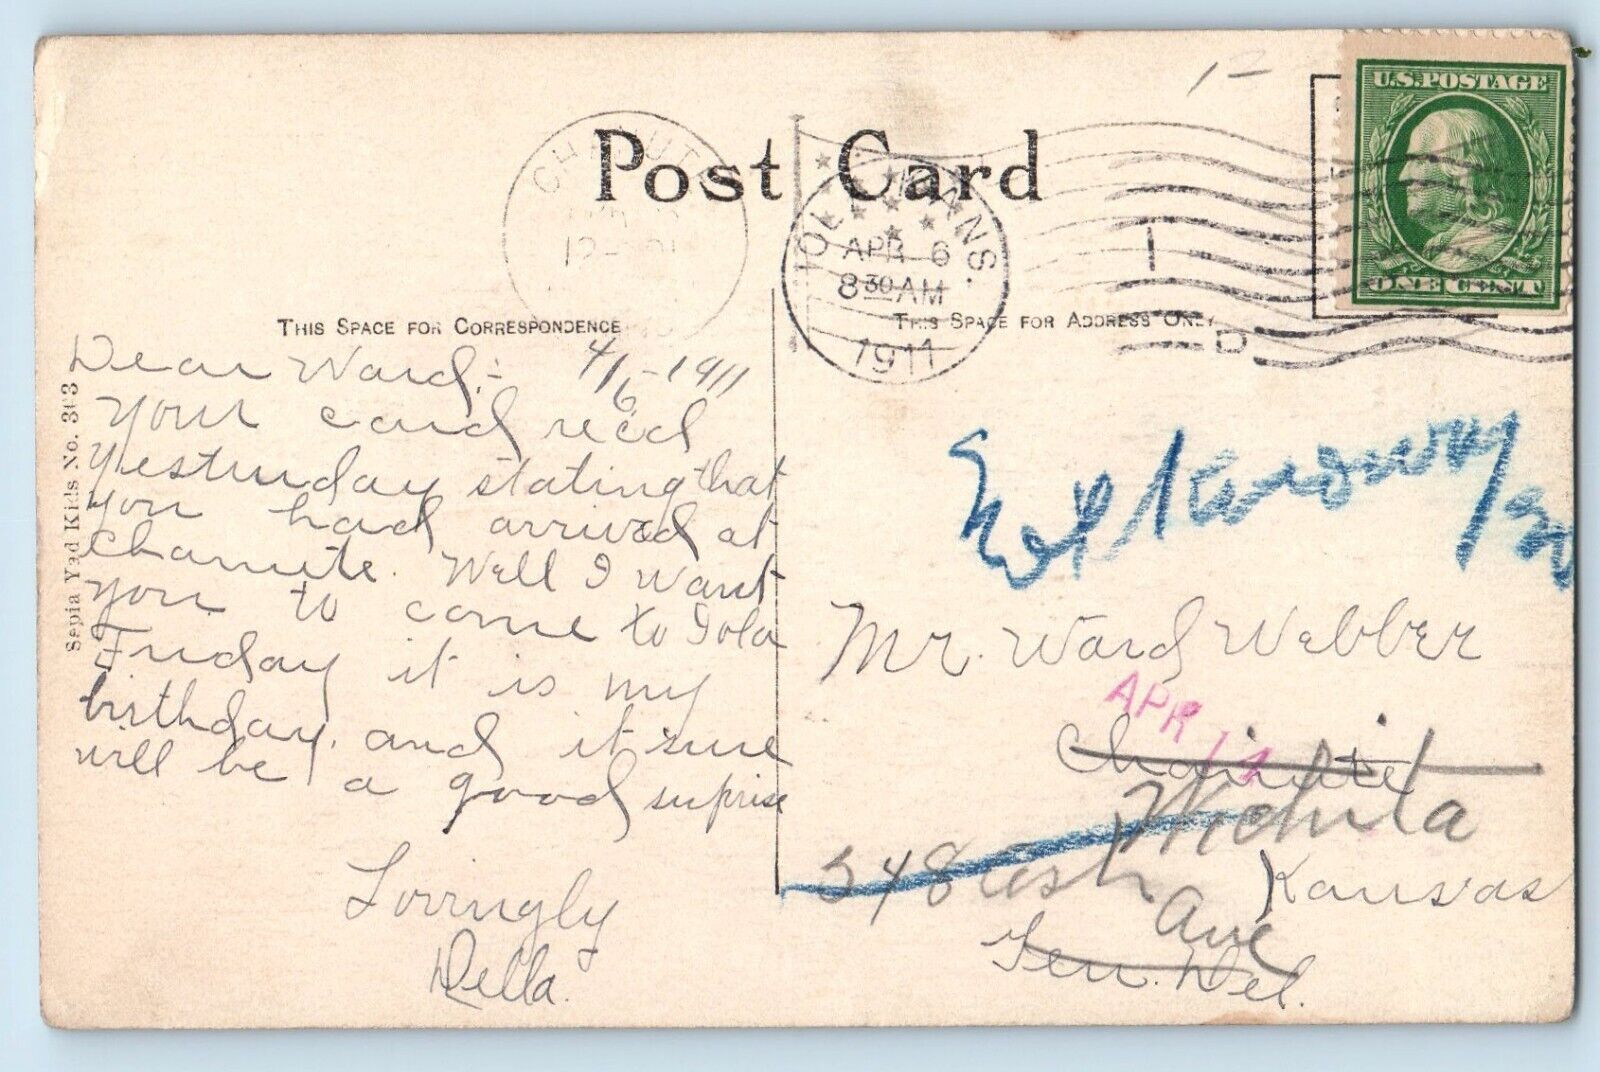 Post Card
IOLA KANS.
APR 6
8 30 AM
1911
1
D
U.S. POSTAGE
ONE CENT
THIS SPACE FOR CORRESPONDENCE
THIS SPACE FOR ADDRESS ONLY
Sepia Yad Kids No. 303
Dear Ward:- 4/6-1911
Your card rec'd
yesturday stating that
you had arrived at
Chanute. Well I want
you to come to Iola
Friday it is my
birthday, and it sure
will be a good suprise
Lovingly
Della.
Mr. Ward Webber
APR
Chanute
Wichita
548 Ash Ave
Kansas
Gen. Del.